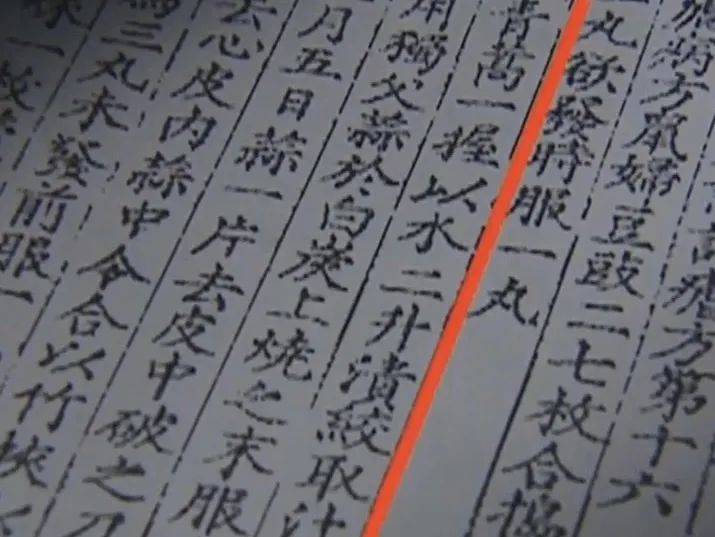 諸瘧方第十六
瘧病方鼠婦豆豉二七枚合搗
丸欲發時服一丸
青蒿一握以水二升漬絞取汁
用獨父蒜於白炭上燒之末服
月五日蒜一片去皮中破之刀
去心皮內蒜中令合以竹挾以
為三丸未發前服一
一枚